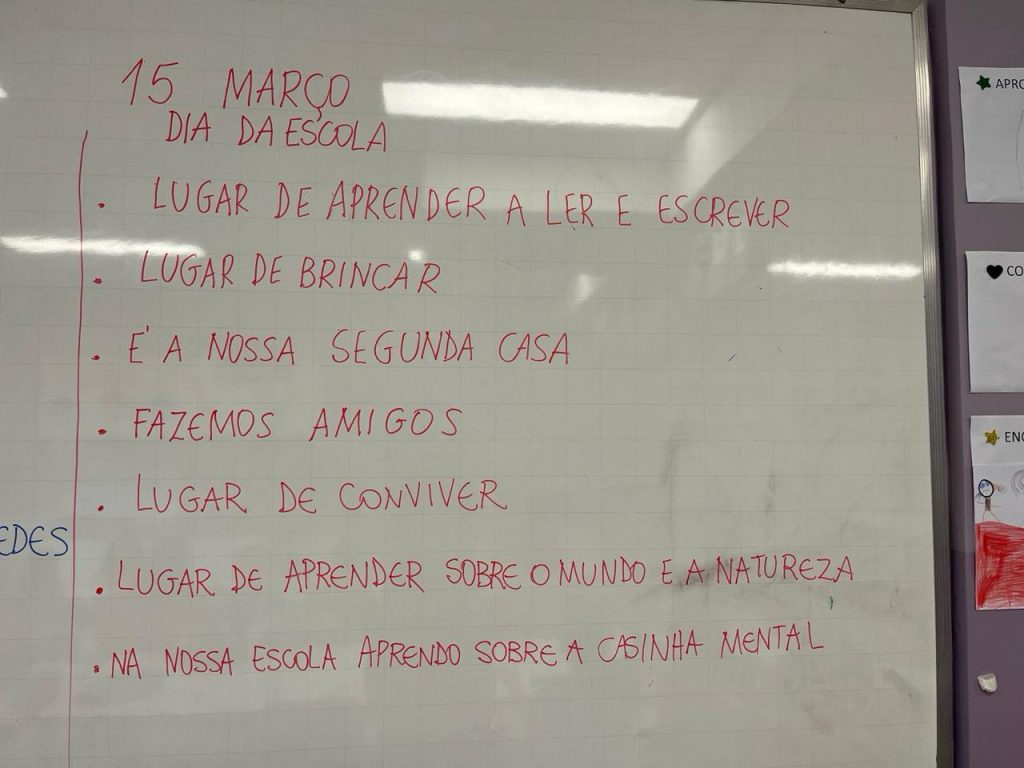 15 MARÇO
DIA DA ESCOLA
. LUGAR DE APRENDER A LER E ESCREVER
. LUGAR DE BRINCAR
. É A NOSSA SEGUNDA CASA
. FAZEMOS AMIGOS
. LUGAR DE CONVIVER
. LUGAR DE APRENDER SOBRE O MUNDO E A NATUREZA
. NA NOSSA ESCOLA APRENDO SOBRE A CASINHA MENTAL